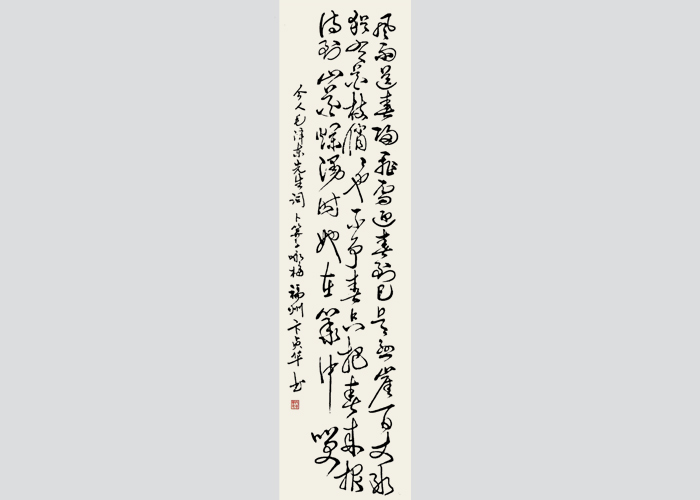 風雨送春归飛雪迎春到已是悬崖百丈冰
犹有花枝俏俏也不争春只把春来报
待到山花爛漫时她在叢中笑
今人毛泽东先生词卜算子咏梅 福州卞贞华书